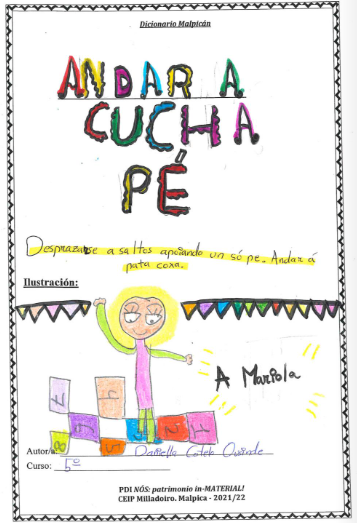 Dicionario Malpicán
ANDAR A
CUCHA
PÉ
Desprazarse a saltos apoiando un só pe. Andar á
pata coxa.
Ilustración:
A Mariola
Autor/a: Daniella Cotelo
Curso: 5º
PDI NÓS: patrimonio in-MATERIAL!
CEIP Milladoiro. Malpica - 2021/22